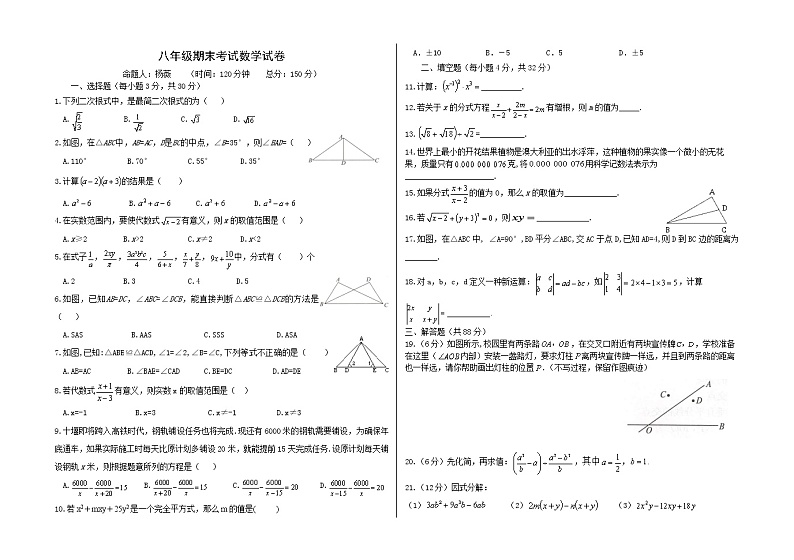 八年级期末考试数学试卷
命题人：杨薇 （时间：120分钟 总分：150分）
一、选择题（每小题3分，共30分）
1.下列二次根式中，是最简二次根式的为（ ）
A. √(2/3) B. 1/√2 C. √3 D. √16
2.如图，在△ABC中，AB=AC，D是BC的中点，∠B=35°，则∠BAD=（ ）
A.110° B.70° C.55° D.35°
A
B D C
3.计算(a−2)(a+3)的结果是（ ）
A. a²−6 B. a²+a−6 C. a²+6 D. a²−a+6
4.在实数范围内，要使代数式√(x−2)有意义，则x的取值范围是（ ）
A.x≥2 B.x>2 C.x≠2 D.x<2
5.在式子1/a，2xy/π，3a²b³c/4，5/(6+x)，x/7+y/8，9x+10/y中，分式有（ ）个
A.2 B.3 C.4 D.5
6.如图，已知AB=DC，∠ABC=∠DCB，能直接判断△ABC≌△DCB的方法是
（ ）
A.SAS B.AAS C.SSS D.ASA
A D
B C
7.如图,已知:△ABE≌△ACD,∠1=∠2,∠B=∠C,下列等式不正确的是（ ）
A.AB=AC B.∠BAE=∠CAD C.BE=DC D.AD=DE
A
B D 2 1 E C
8.若代数式(x+1)/(x−3)有意义，则实数x的取值范围是（ ）
A.x=-1 B.x=3 C.x≠-1 D.x≠3
9.十堰即将跨入高铁时代，钢轨铺设任务也将完成.现还有6000米的钢轨需要铺设，为确保年
底通车，如果实际施工时每天比原计划多铺设20米，就能提前15天完成任务.设原计划每天铺
设钢轨x米，则根据题意所列的方程是（ ）
A. 6000/x−6000/(x+20)=15 B. 6000/(x+20)−6000/x=15 C. 6000/x−6000/(x−15)=20 D. 6000/(x−15)−6000/x=20
10.若x²+mxy+25y²是一个完全平方式，那么m的值是( )
A．±10 B．−5 C．5 D．±5
二、填空题（每小题4分，共32分）
11.计算：(x⁻³)²·x³=
12.若关于x的分式方程x/(x−2)+2m/(2−x)=2m有增根，则m的值为
13.(√8+√18)÷√2=
14.世界上最小的开花结果植物是澳大利亚的出水浮萍，这种植物的果实像一个微小的无花
果，质量只有0.000 000 076克.将0.000 000 076用科学记数法表示为
15.如果分式(x+3)/(x−2)的值为0，那么x的取值为
16.若√(x−2)+(y+1)²=0，则xy=
A
D
B C
17.如图，在△ABC中，∠A=90°,BD平分∠ABC,交AC于点D,已知AD=4,则D到BC边的距离为
18.对a，b，c，d定义一种新运算：|a c; b d|=ad−bc，如|2 3; 1 4|=2×4−1×3=5，计算
|2x y; x x+y|=
三、解答题（共88分）
19.（6分）如图所示,校园里有两条路OA、OB，在交叉口附近有两块宣传牌C、D，学校准备
在这里(∠AOB内部)安装一盏路灯，要求灯柱P离两块宣传牌一样远，并且到两条路的距离
也一样远，请你帮助画出灯柱的位置P．(不写过程，保留作图痕迹)
A
C
D
O B
20.（6分）先化简，再求值：(a²/b−a)÷(a²−b²)/b，其中a=1/2，b=1.
21.（12分）因式分解：
（1）3ab²+9a²b−6ab （2）2m(x+y)−n(x+y) （3）2x²y−12xy+18y